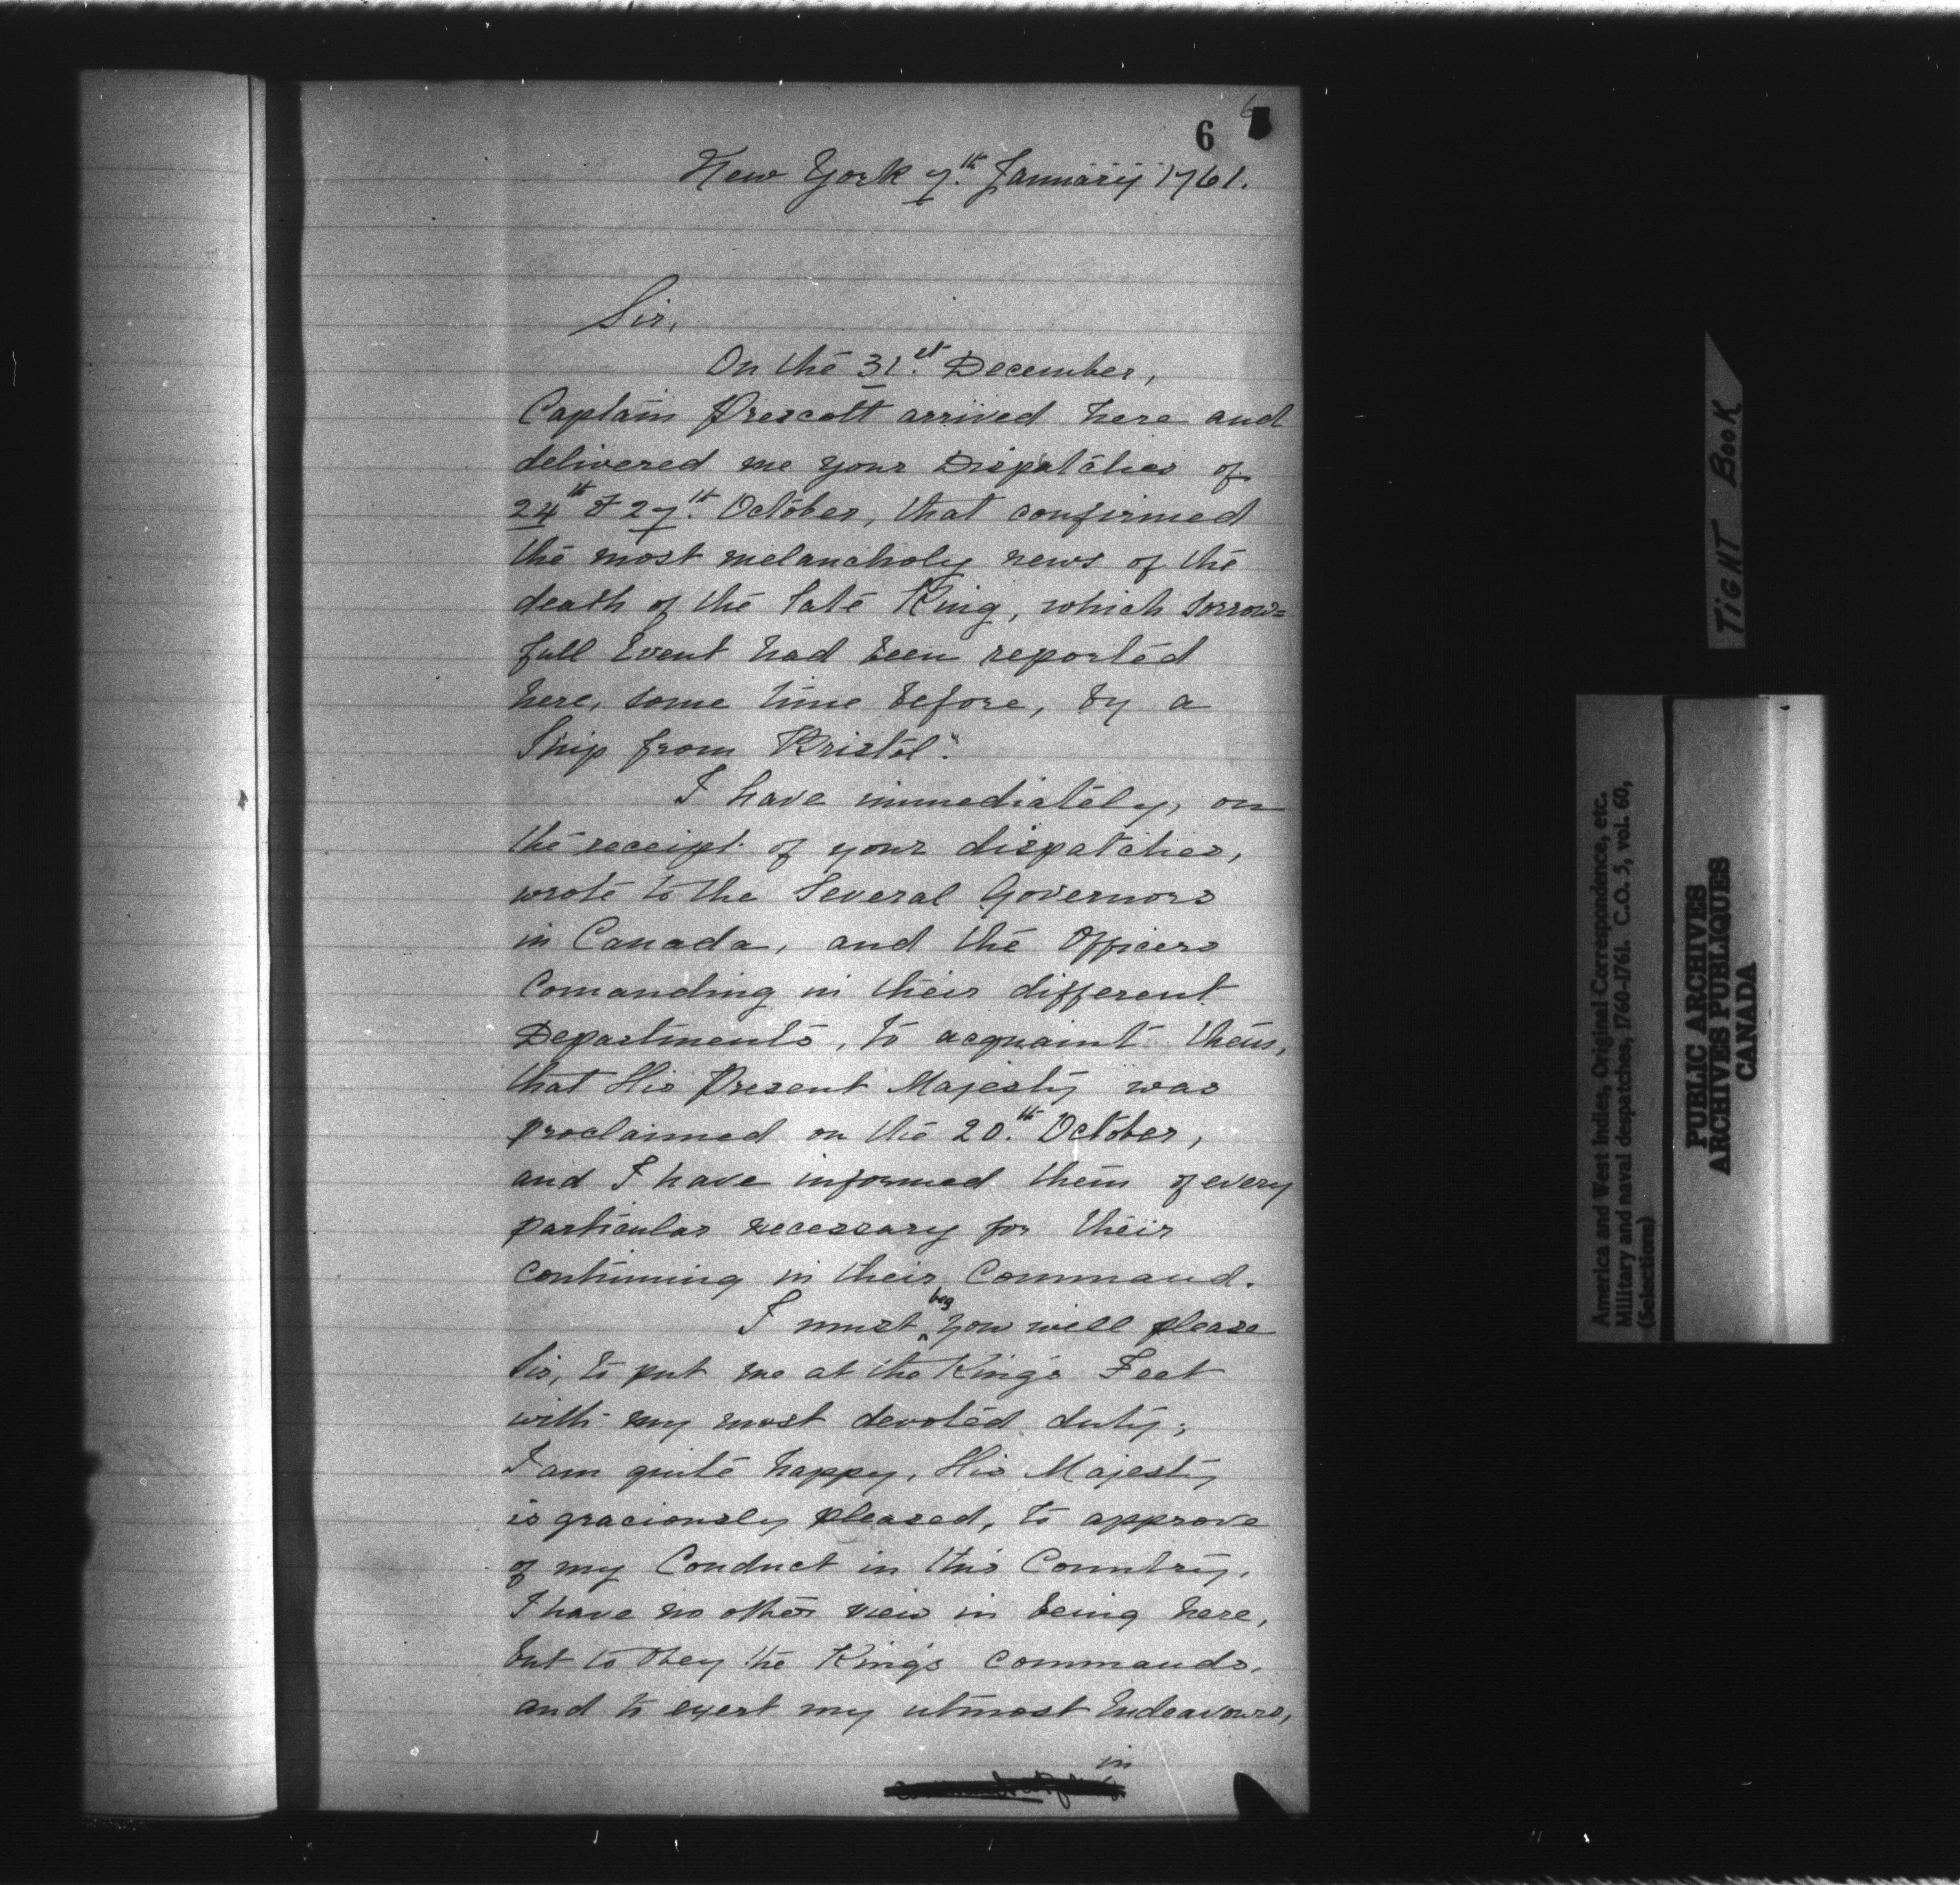 6
New York 7th. January 1761.
Sir,
On the 31st. December,
Captain Prescott arrived here and
delivered me your Dispatches of
24th & 27th. October, that confirmed
the most melancholy news of the
death of the late King, which Sorrow=
full Event had been reported
here, some time before, by a
Ship from Bristol.
I have immediately, on
the receipt of your dispatches,
wrote to the Several Governors
in Canada, and the Officers
Comanding in their different
Departments, to acquaint them,
that His Present Majesty was
proclaimed on the 20th. October,
and I have informed them of every
particular necessary for their
continuing in their Command.
I must beg You will please
Sir, to put me at the King's Feet
with my most devoted duty;
I am quite happy, His Majesty
is graciously pleased, to approve
of my Conduct in this Country.
I have no other view in being here,
but to Obey the King's Commands,
and to exert my utmost Endeavours,
in
TIGHT BOOK
America and West Indies, Original Correspondence, etc.
Military and naval despatches, 1760-1761. C.O. 5, vol. 60,
(Selections)
PUBLIC ARCHIVES
ARCHIVES PUBLIQUES
CANADA